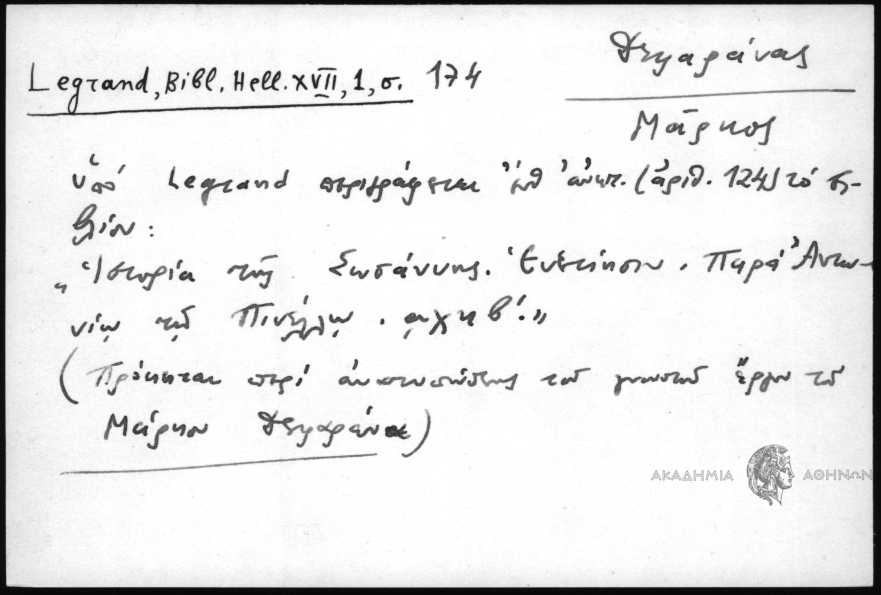 Legrand, Bibl. Hell. XVII, 1, σ. 174
Δεφαράνας
Μάρκος
ὑπό Legrand περιγράφεται ὑπ' ἀριθ. (ἀριθ. 124) τό βι-
βλίον:
„Ἱστορία τῆς Σωσάννης. Ἐνετίησιν. Παρά Ἀντω-
νίῳ τῷ Πινέλλῳ. ͵αχκβ΄."
(Πρόκειται περί ἀνατυπώσεως τοῦ γνωστοῦ ἔργου τοῦ
Μάρκου Δεφαράνα)
ΑΚΑΔΗΜΙΑ ΑΘΗΝΩΝ